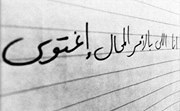 انا اللي بالأمر المحال إغتوى